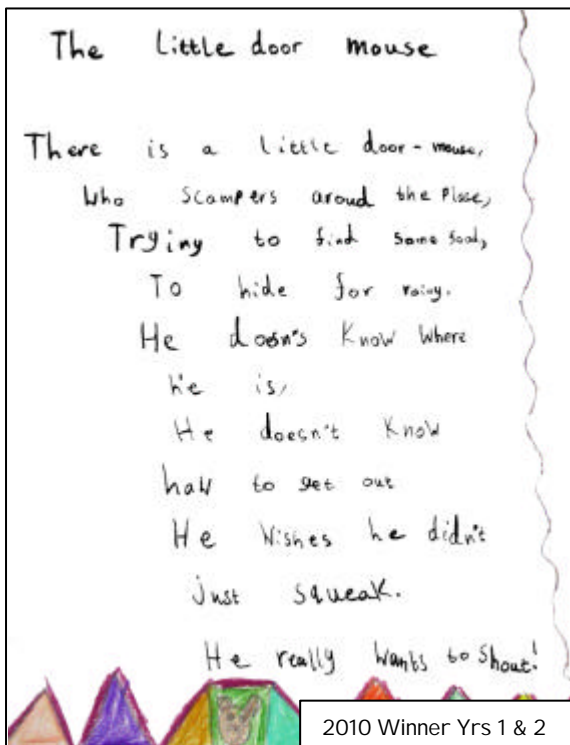 The little door mouse
There is a little door-mouse,
Who scampers aroud the Place,
Trying to find some food,
To hide for rainy.
He doesn's know where
he is,
He doesn't know
how to get out
He Wishes he didn't
just squeak.
He really wants to Shout!
2010 Winner Yrs 1 & 2